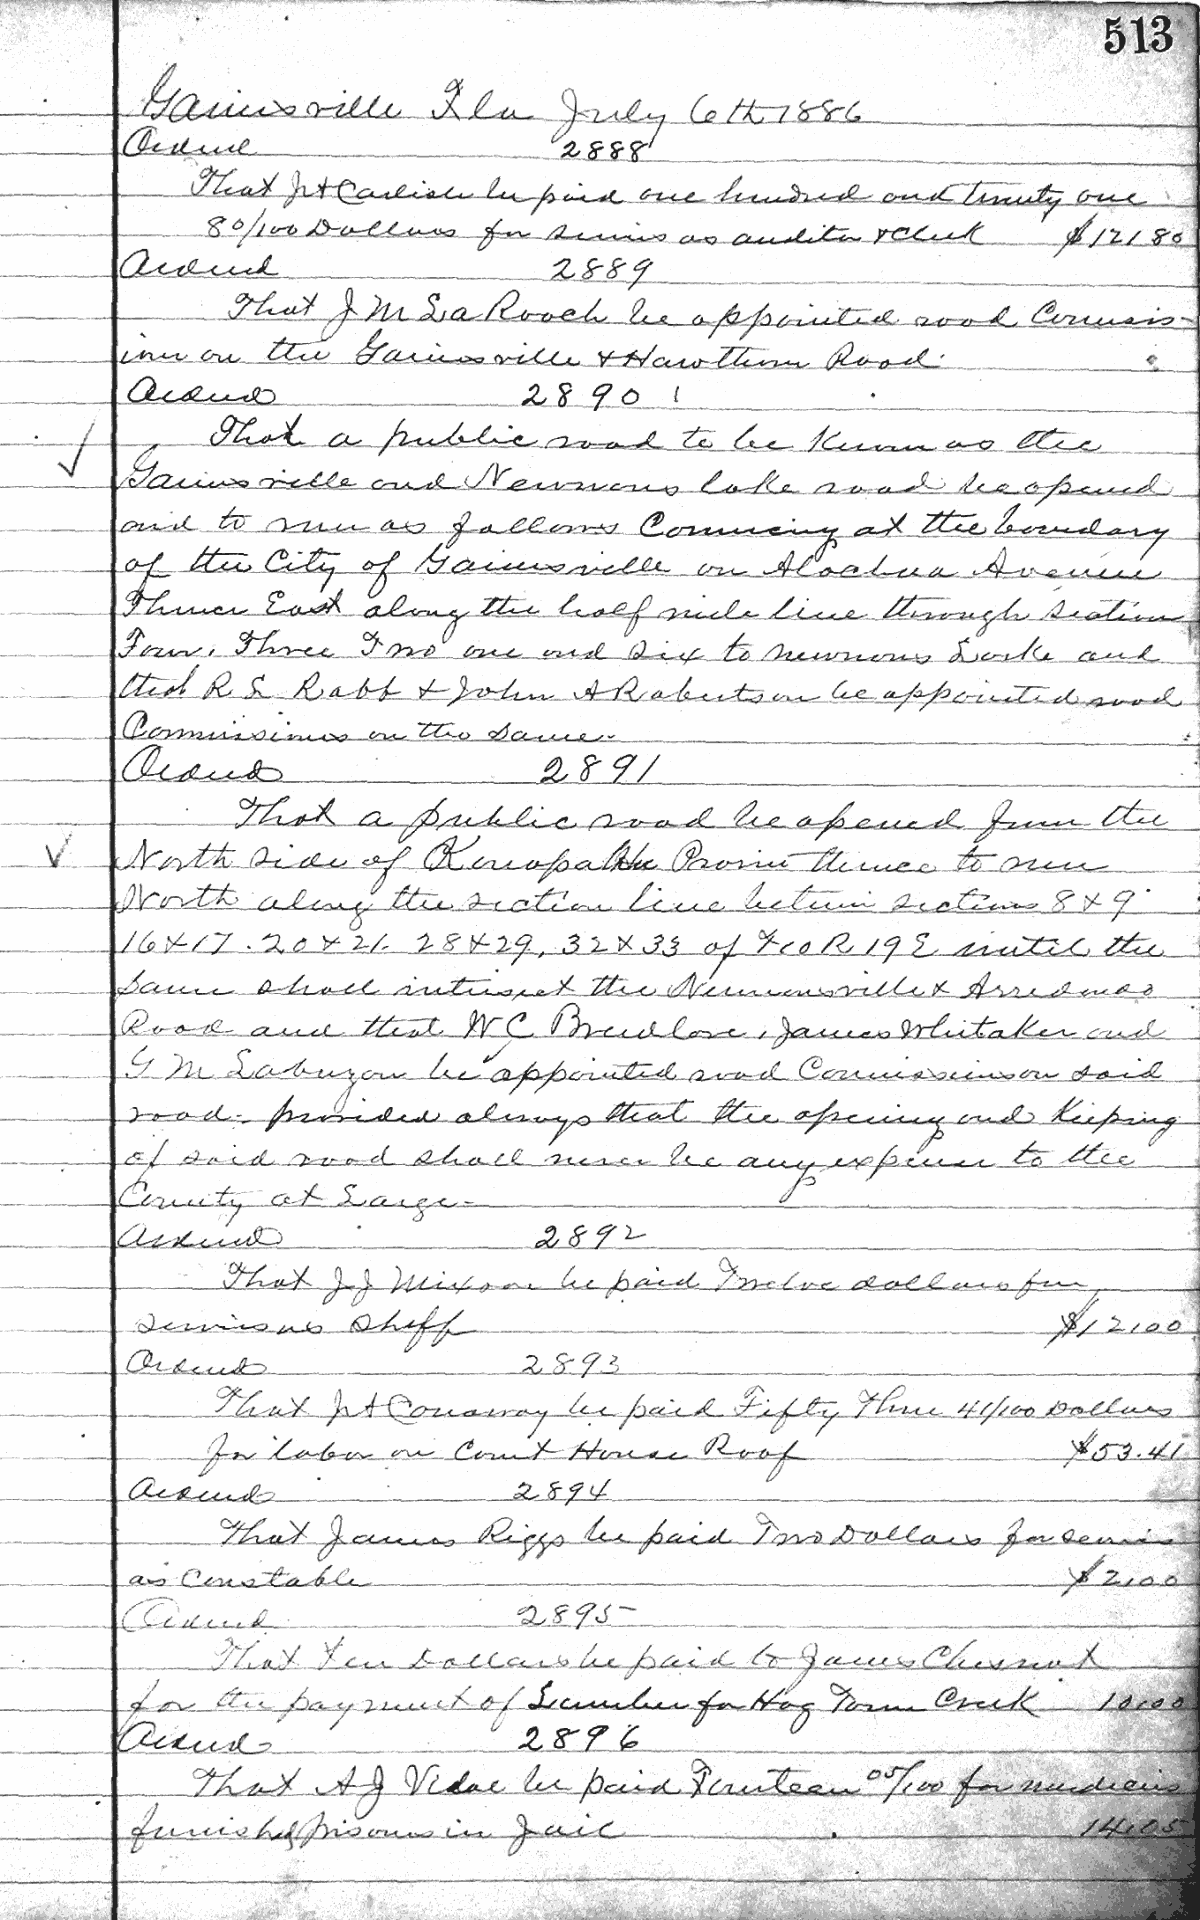 513
Gainesville Fla July 6th 1886
Ordered 2888
That J A Carlisle be paid one hundred and twenty one
80/100 Dollars for services as auditor & Clerk $121 80
Ordered 2889
That J M La Roach be appointed road Commiss-
ioner on the Gainesville & Hawthorn Road.
Ordered 2890
That a public road to be known as the
Gainesville and Newnans lake road be opened
and to run as follows Commencing at the boundary
of the City of Gainesville on Alachua Avenue
Thence East along the half mile line through section
Four, Three Two one and six to newnans Lake and
that R L Robb & John A Robertson be appointed road
Commissioners on the same.
Ordered 2891
That a public road be opened from the
North side of Kanapaha Prairie thence to run
North along the section line between sections 8 & 9
16 & 17. 20 & 21. 28 & 29, 32 & 33 of R 19 E until the
same shall intersect the Newnansville & Arredondo
Road and that W C Breedlove, James Whitaker and
G M be appointed road Commissioners on said
road. provided always that the opening and Keeping
of said road shall never be any expense to the
County at Large-
Ordered 2892
That J J Mixson be paid Twelve dollars for
services as Sheff $12.00
Ordered 2893
That J A Conaway be paid Fifty Three 41/100 Dollars
for labor on Court House Roof $53.41
Ordered 2894
That James Riggs be paid Two Dollars for services
as Constable $2.00
Ordered 2895
That Ten Dollars be paid to James Chesnut
for the payment of Lumber for Hog Town Creek 10.00
Ordered 2896
That A J Vidal be paid Fourteen 05/100 for medicins
furnished prisoners in Jail 14.05